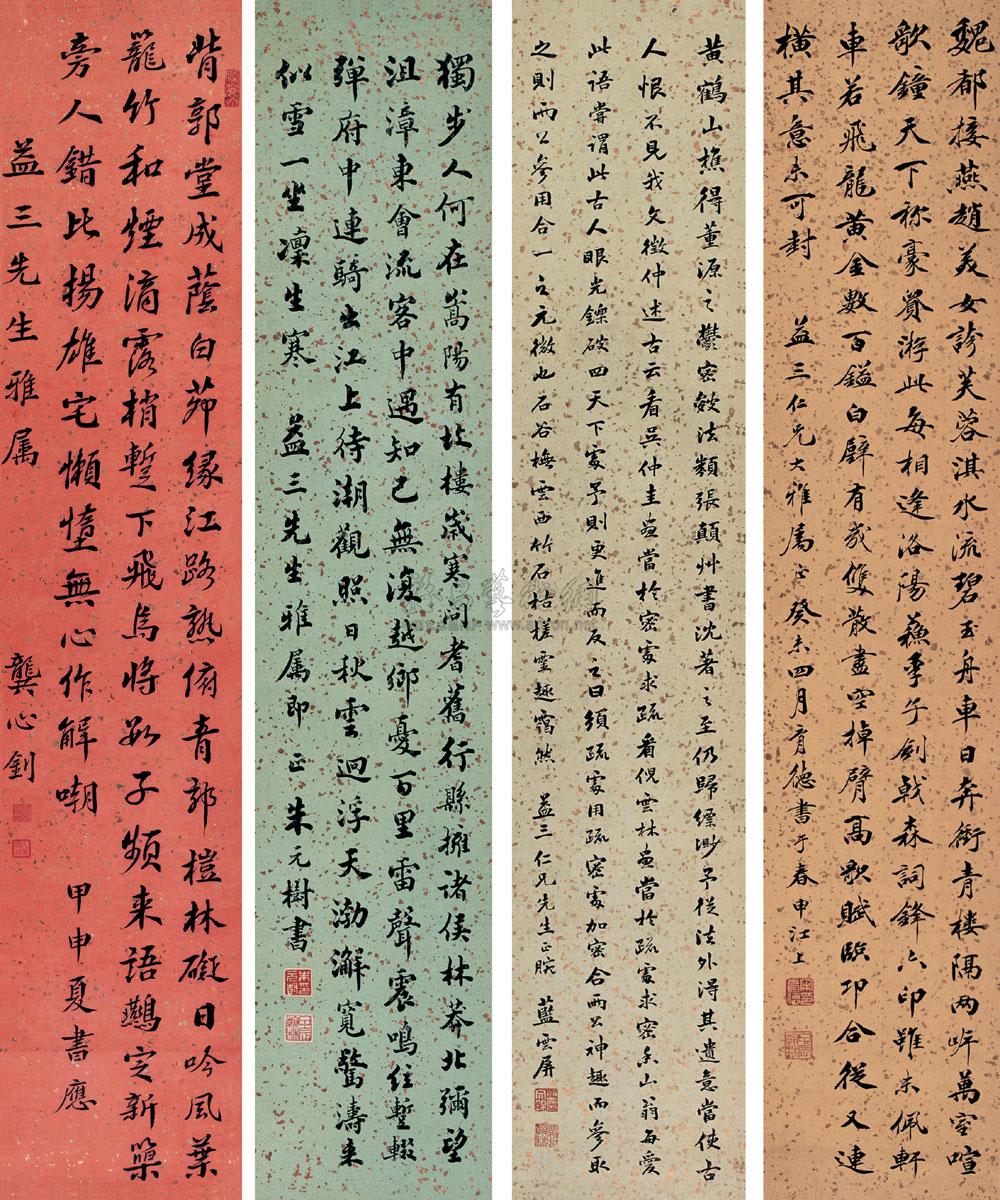 魏都接燕趙美女誇芙蓉淇水流碧玉舟車日奔衝青樓隔兩岸萬室喧
歌鐘天下稱豪貴游此每相逢洛陽蘇季子劍戟森詞鋒六印雖未佩軒
車若飛龍黃金數百鎰白璧有幾雙散盡空掉臂高歌賦臨邛合從又連
橫其意未可封 益三仁兄大雅屬正癸未四月育德書于春申江上
黃鶴山樵得董源之鬱密皴法類張顛艸書沈著之至仍歸縹渺予從法外得其遺意當使古
人恨不見我文徵仲述古云看吳仲圭畫當於密處求疏看倪雲林畫當於疏處求密香山翁每愛
此語嘗謂此古人眼光鑠破四天下處予則更進而反之曰須疏處用疏密處加密合兩公神趣而參取
之則兩公參用合一之元微也石谷橅雲西竹石枯槎靈趣靄然 益三仁兄先生正腕 藍雲屏
獨步人何在嵩陽有故樓歲寒問耆舊行縣擁諸侯林莽北彌望
沮漳東會流客中遇知己無復越鄉憂百里雷聲震鳴絃暫輟
彈府中連騎出江上待潮觀照日秋雲迥浮天渤澥寬驚濤來
似雪一坐凜生寒 益三先生雅屬即正朱元樹書
背郭堂成蔭白茆緣江路熟俯青郊榿林礙日吟風葉
籠竹和煙滴露梢暫下飛烏將數子頻來語鷰定新巢
旁人錯比揚雄宅懶惰無心作解嘲 甲申夏書應
益三先生雅屬 龔心釗